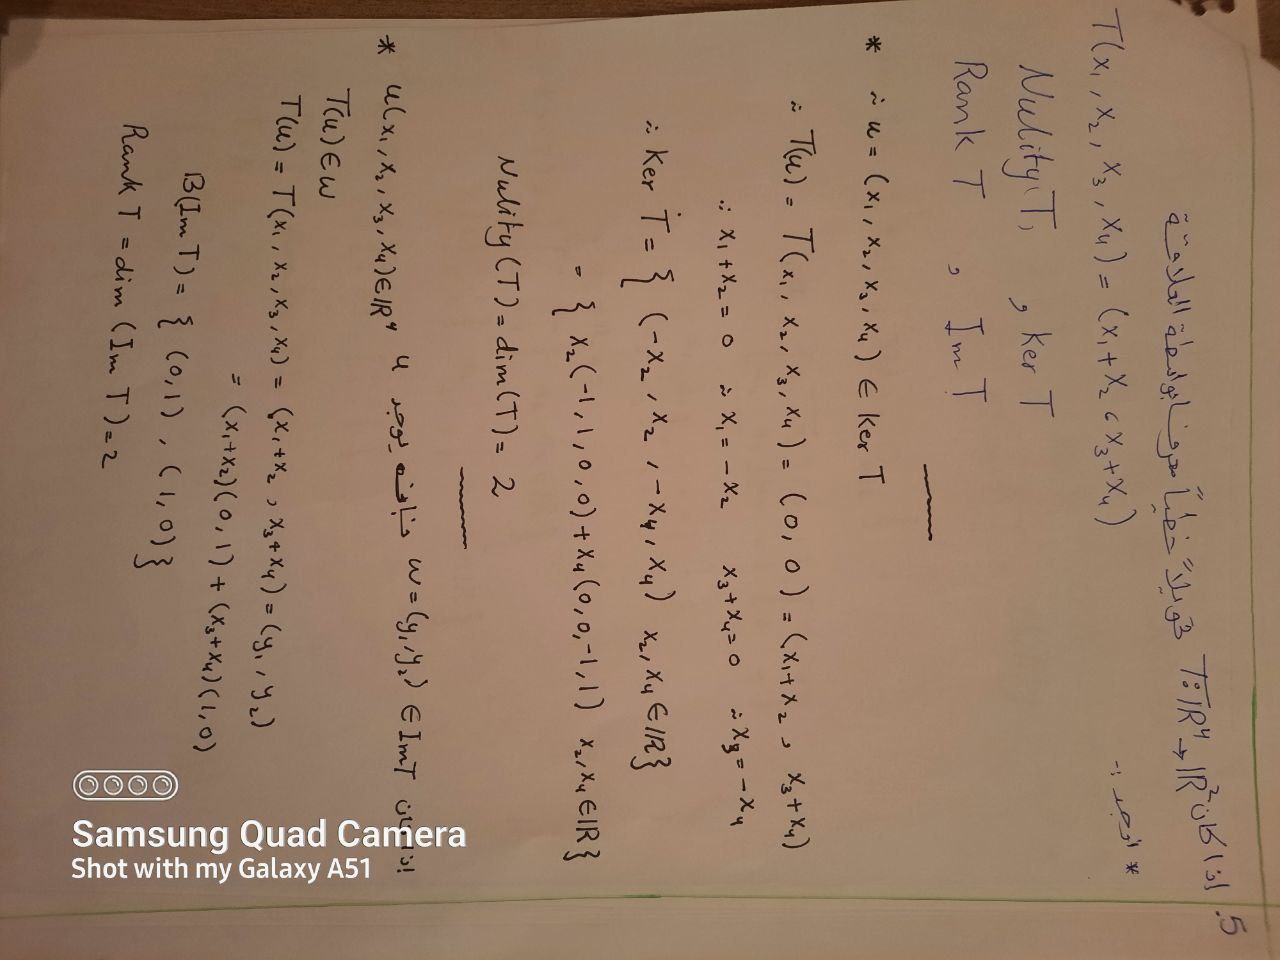 5. إذا كان T: IR⁴ → IR² تحويلاً خطياً معرفا بواسطة العلاقة
* أوجد :-
T(x₁, x₂, x₃, x₄) = (x₁+x₂ ، x₃+x₄)
Nulity(T) , Ker T
Rank T , Im T
* ∴ u = (x₁, x₂, x₃, x₄) ∈ Ker T
∴ T(u) = T(x₁, x₂, x₃, x₄) = (0, 0) = (x₁+x₂ , x₃+x₄)
∴ x₁+x₂ = 0 ∴ x₁ = -x₂ x₃+x₄=0 ∴ x₃ = -x₄
∴ Ker T = { (-x₂, x₂, -x₄, x₄) x₂, x₄ ∈ IR}
= { x₂(-1,1,0,0) + x₄(0,0,-1,1) x₂,x₄ ∈ IR}
Nulity (T) = dim(T) = 2
* إذا كان w = (y₁, y₂) ∈ Im T فإنه يوجد u u(x₁, x₂, x₃, x₄) ∈ IR⁴
T(u) ∈ w
T(u) = T(x₁, x₂, x₃, x₄) = (x₁+x₂ , x₃+x₄) = (y₁, y₂)
= (x₁+x₂)(0,1) + (x₃+x₄)(1,0)
B(Im T) = { (0,1) , (1,0)}
Rank T = dim (Im T) = 2
Samsung Quad Camera
Shot with my Galaxy A51